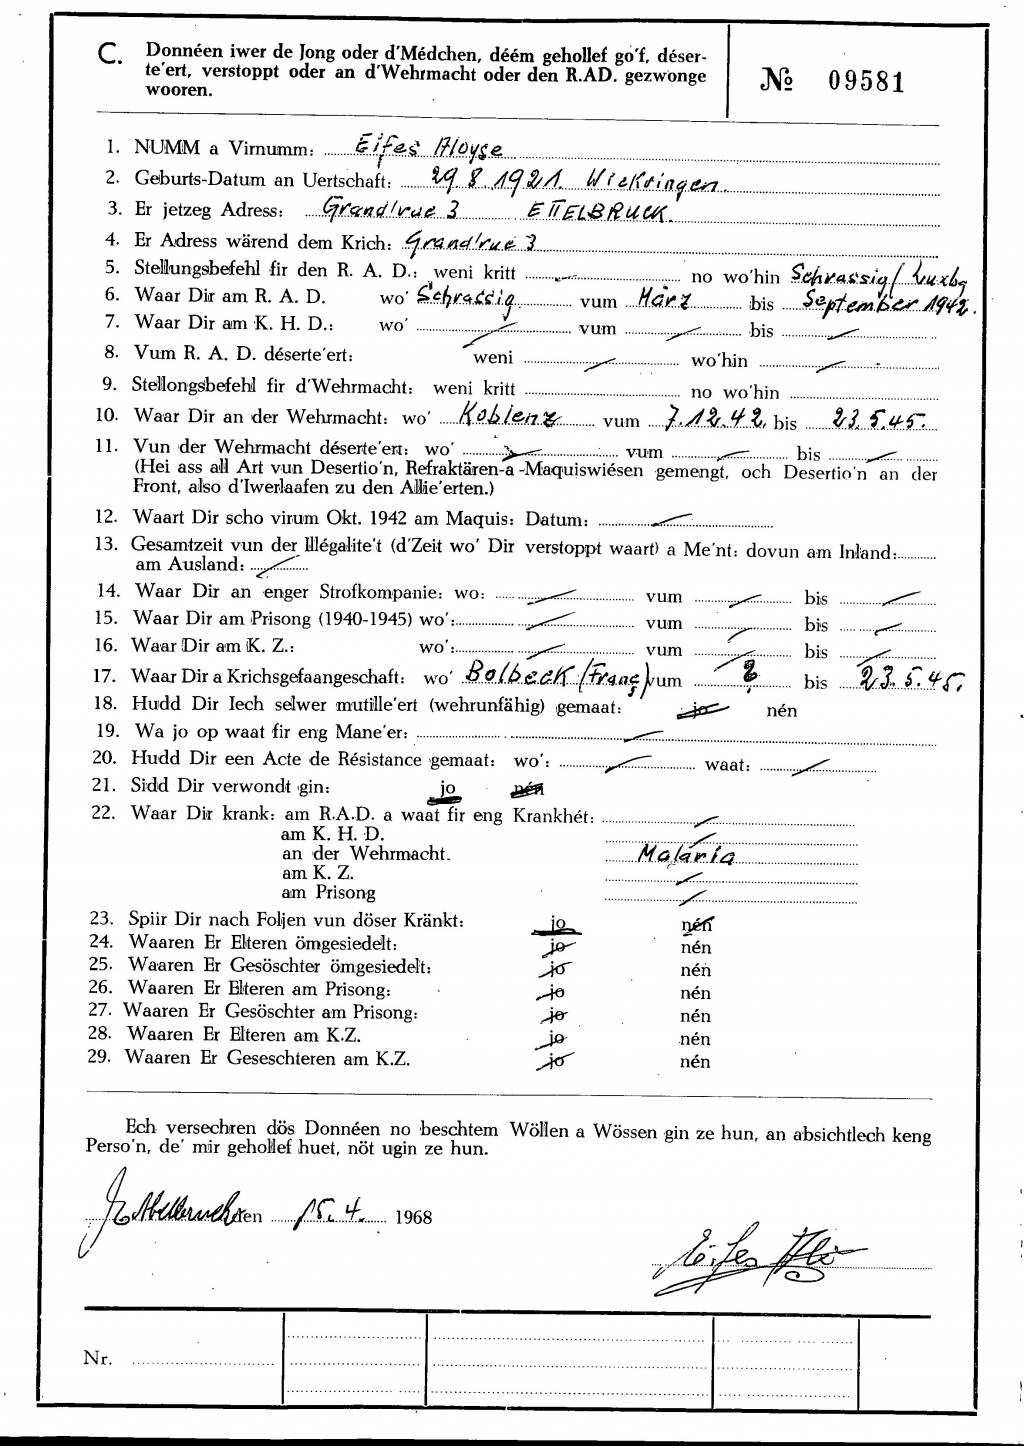 C. Donnéen iwer de Jong oder d'Médchen, déém gehollef go'f, déser-
te'ert, verstoppt oder an d'Wehrmacht oder den R.AD. gezwonge
wooren.
№ 09581
1. NUMM a Virnumm: Eifes Aloyse
2. Geburts-Datum an Uertschaft: 29 8. 1921. Wickringen.
3. Er jetzeg Adress: Grand'rue 3 ETTELBRUCK.
4. Er Adress wärend dem Krich: Grand'rue 3
5. Stellungsbefehl fir den R. A. D.: weni kritt no wo'hin Schrassig/Luxbg
6. Waar Dir am R. A. D. wo' Schrassig vum März bis September 1942.
7. Waar Dir am K. H. D.: wo' vum bis
8. Vum R. A. D. déserte'ert: weni wo'hin
9. Stellongsbefehl fir d'Wehrmacht: weni kritt no wo'hin
10. Waar Dir an der Wehrmacht: wo' Koblenz vum 7.12.42. bis 23.5.45.
11. Vun der Wehrmacht déserte'ert: wo' vum bis
(Hei ass all Art vun Desertio'n, Refraktären-a -Maquiswiésen gemengt, och Desertio'n an der
Front, also d'Iwerlaafen zu den Allie'erten.)
12. Waart Dir scho virum Okt. 1942 am Maquis: Datum:
13. Gesamtzeit vun der Illégalite't (d'Zeit wo' Dir verstoppt waart) a Me'nt: dovun am Inland:
am Ausland:
14. Waar Dir an enger Strofkompanie: wo: vum bis
15. Waar Dir am Prisong (1940-1945) wo': vum bis
16. Waar Dir am K. Z.: wo': vum bis
17. Waar Dir a Krichsgefaangeschaft: wo' Bolbeck (Franç) vum ? bis 23.5.45.
18. Hudd Dir Iech selwer mutille'ert (wehrunfähig) gemaat: jo nén
19. Wa jo op waat fir eng Mane'er:
20. Hudd Dir een Acte de Résistance gemaat: wo': waat:
21. Sidd Dir verwondt gin: jo nén
22. Waar Dir krank: am R.A.D. a waat fir eng Krankhét:
am K. H. D.
an der Wehrmacht. Malaria
am K. Z.
am Prisong
23. Spiir Dir nach Foljen vun döser Kränkt: jo nén
24. Waaren Er Elteren ömgesiedelt: jo nén
25. Waaren Er Gesöschter ömgesiedelt: jo nén
26. Waaren Er Elteren am Prisong: jo nén
27. Waaren Er Gesöschter am Prisong: jo nén
28. Waaren Er Elteren am K.Z. jo nén
29. Waaren Er Geseschteren am K.Z. jo nén
Ech versechren dös Donnéen no beschtem Wöllen a Wössen gin ze hun, an absichtlech keng
Perso'n, de' mir gehollef huet, nöt ugin ze hun.
den 15.4. 1968
Eifes Alo
Nr.